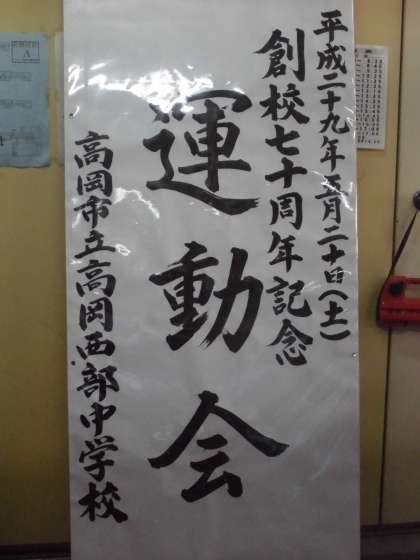 平成二十九年五月二十日(土)
創校七十周年記念
運動会
高岡市立高岡西部中学校
A